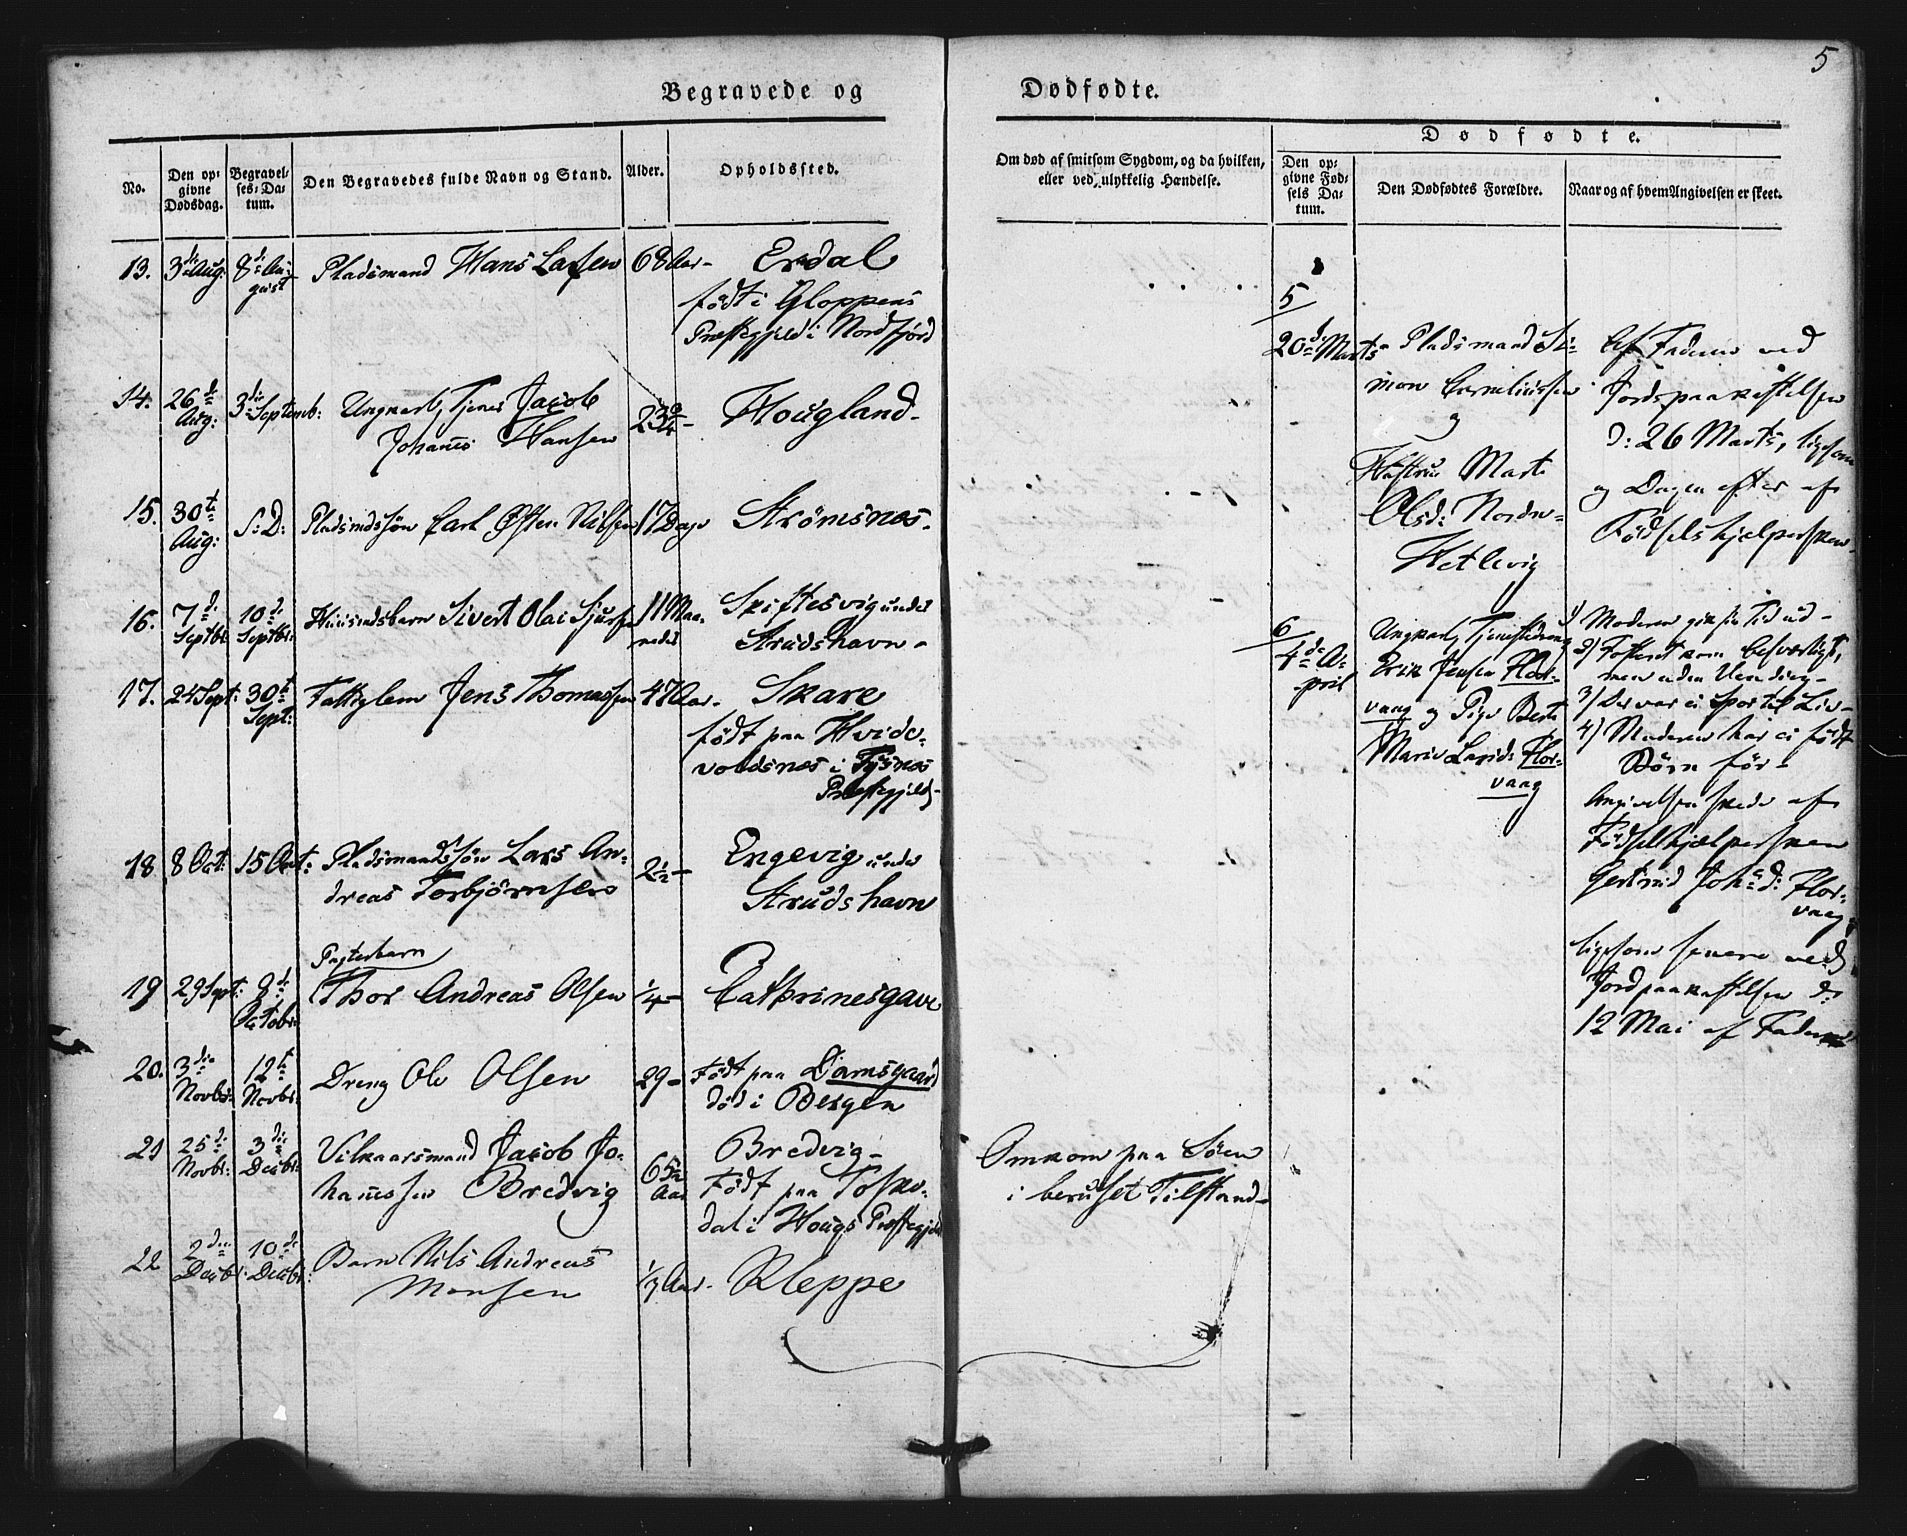 5
Begravede og Dødfødte.
No.
Den op-
givne
Dødsdag.
Begravel-
ses-Da-
tum.
Den Begravedes fulde Navn og Stand.
Alder.
Opholdssted.
Om død af smitsom Sygdom, og da hvilken,
eller ved ulykkelig Hændelse.
Dødfødte.
Den op-
givne Fød-
sels Da-
tum.
Den Dødfødtes Forældre.
Naar og af hvem Angivelsen er skeet.
13. 3die Aug: 8de Au-
gust
Pladsmand Hans Larsen 68 Aar- Erdal
født i Gloppens
Præstegjeld i Nordfjord
14. 26de
Aug:
3die Septemb:
Ungkarl, Tjener Jacob
Johannes Hansen
23 3/4- Hougland-
15. 30te
Aug:
S:D: Pladsmdssøn Carl Østen Nilsen 17 Dage Strømsnes-
16. 7de
Septbr
10de
Septbr:
Huusmdsbarn Sivert Olai Sjursen 11 Maa-
neder
Skiftesvig under
Strudshavn-
17. 24 Sept: 30te
Sept:
Fattiglem Jens Thomassen 47 Aar- Skare
født paa Hvide-
voldsnes i Tysnes
Præstegjeld-
18 8 Oct: 15 Oct: Pladsmandssøn Lars An-
dreas Torbjørnsen
2 1/2- Engevig under
Strudshavn
19 29 Sept: 8de
Octobr:
Pagterbarn
Thor Andreas Olsen 1/4- Cathrinesgave
20. 3die
Novbr:
12te
Novbr:
Dreng Ole Olsen 29- Født paa Damsgaard
død i Bergen
21 25de
Novbr:
3die
Decbr:
Vilkaarsmand Jacob Jo-
hannessen Bredvig
65
Aar
Bredvig-
Født paa Toske-
dal i Hougs Præstegjeld
Omkom paa Søen
i beruset Tilstand-
22 2den
Decbr:
10de
Decbr:
Barn Nils Andreas
Monsen
1/2 Aar- Kleppe
5/
20de Marts- Pladsmand Si-
mon Corneliussen
og
Hustru Marte
Olsd: Nordre-
Hetlevig
Af Faderen ved
Jordspaakastelsen
d: 26 Marts, ligesom
og Dagen efter af
Fødselshjelpersken-
6/
4de A-
pril
Ungkarl, Tjenestedreng
Erik Jensen Flor-
vaag og Pige Berte
Marie Larsd: Flor-
vaag
1) Moderen gik sin Tid ud-
2) Fosteret kom besværligt,
men uden Vending-
3) Der var ei Spor til Liv-
4) Moderen har ei født
Børn før-
Angivelsen skede af
Fødselhjælpersken
Gertrud Johsd: Flor-
vaag
ligesom senere ved
Jordpaakastelsen d:
12 Mai af Faderen